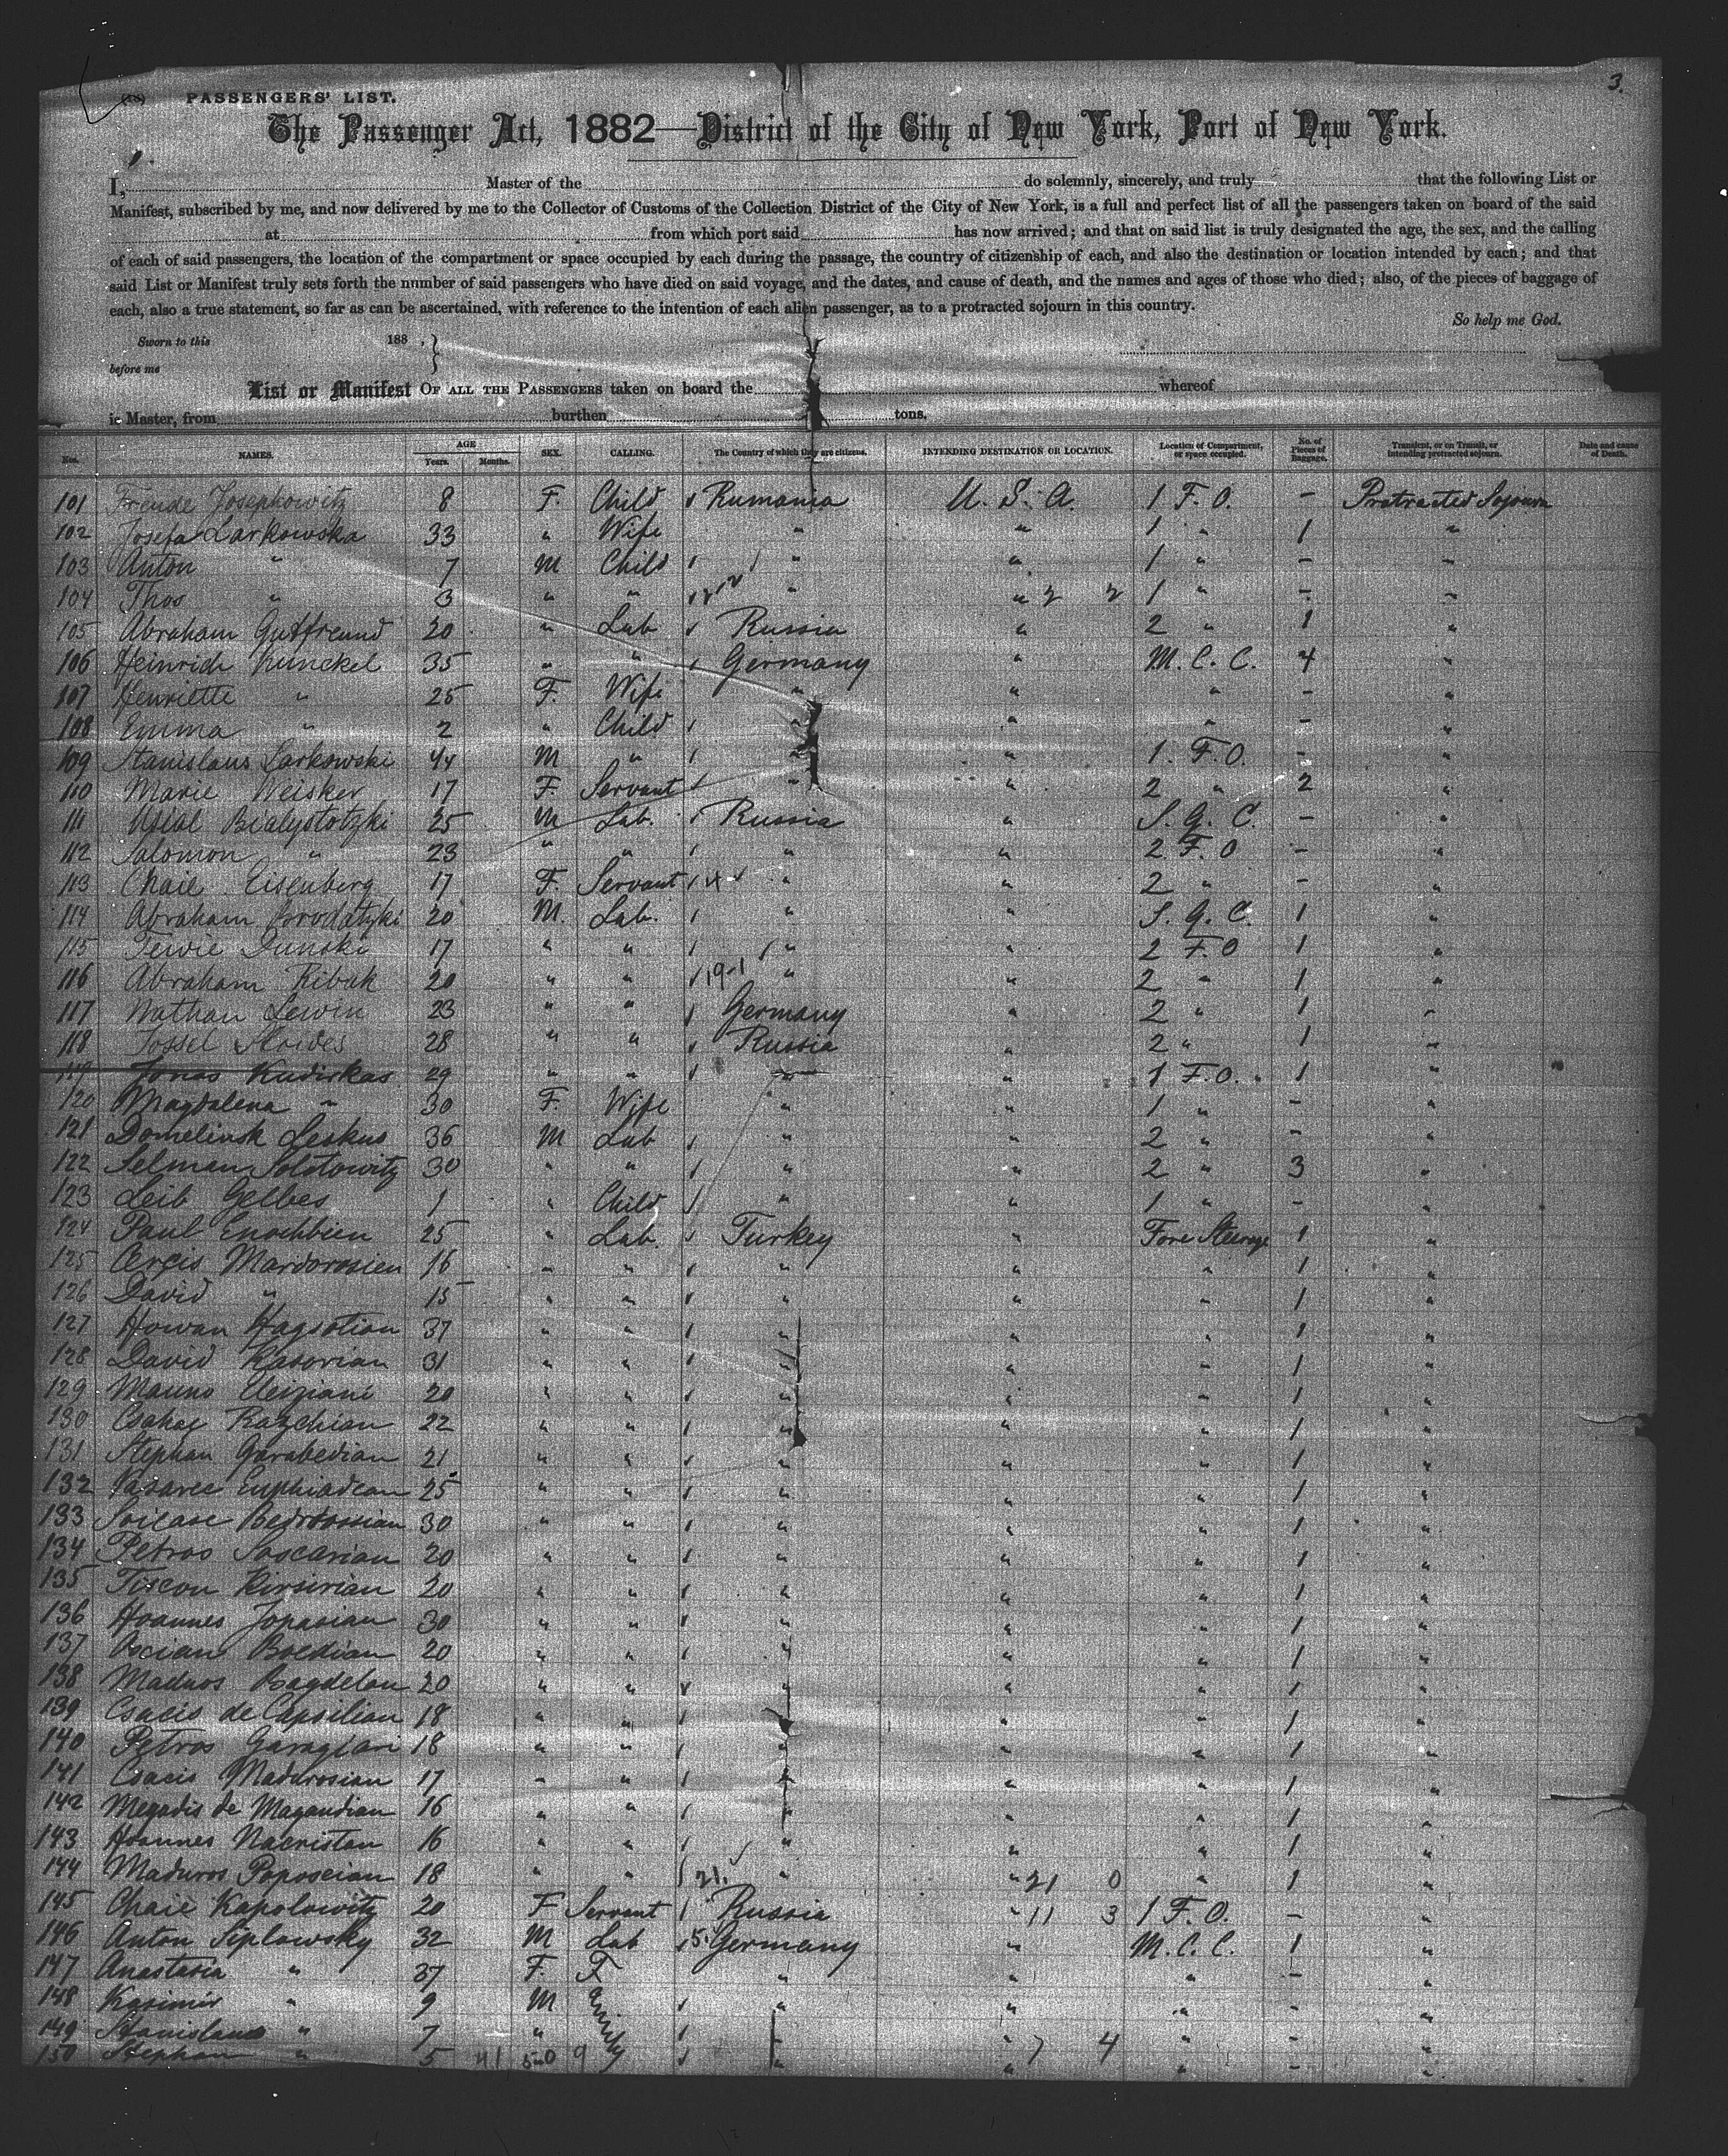 3.
(18) PASSENGERS' LIST.
The Passenger Act, 1882—District of the City of New York, Port of New York.
I, Master of the do solemnly, sincerely, and truly that the following List or
Manifest, subscribed by me, and now delivered by me to the Collector of Customs of the Collection District of the City of New York, is a full and perfect list of all the passengers taken on board of the said
at from which port said has now arrived; and that on said list is truly designated the age, the sex, and the calling
of each of said passengers, the location of the compartment or space occupied by each during the passage, the country of citizenship of each, and also the destination or location intended by each; and that
said List or Manifest truly sets forth the number of said passengers who have died on said voyage, and the dates, and cause of death, and the names and ages of those who died; also, of the pieces of baggage of
each, also a true statement, so far as can be ascertained, with reference to the intention of each alien passenger, as to a protracted sojourn in this country.
So help me God.
Sworn to this 188 , }
before me
List or Manifest OF ALL THE PASSENGERS taken on board the whereof
is Master, from burthen tons.
Nos. NAMES. AGE Years. Months. SEX. CALLING. The Country of which they are citizens. INTENDING DESTINATION OR LOCATION. Location of Compartment, or space occupied. No. of Pieces of Baggage. Transient, or on Transit, or intending protracted sojourn. Date and cause of Death.
101 Freude Josephowitz 8 F. Child Rumania U. S. A. 1 F. O. – Protracted Sojourn
102 Josefa Larkowska 33 " Wife " " 1 " 1 "
103 Anton " 7 M Child " " 1 " – "
104 Thos " 3 " " " " 2 2 1 " – "
105 Abraham Gutfreund 20 " Lab Russia " 2 " 1 "
106 Heinrich Kunckel 35 " " Germany " M. C. C. 4 "
107 Henriette " 25 F. Wife " " " – "
108 Emma " 2 " Child " " " – "
109 Stanislaus Larkowski 44 M " " " 1. F. O. – "
110 Marie Weisker 17 F. Servant " " 2 " 2 "
111 Bialystotzki 25 M Lab. Russia " S. G. C. – "
112 Salomon " 23 " " " " 2 F. O – "
113 Chaie Eisenberg 17 F. Servant " " 2 " – "
114 Abraham Brodatzki 20 M. Lab. " " S. G. C. 1 "
115 Tewie Dunski 17 " " " " 2 F. O 1 "
116 Abraham Ribak 20 " " 19-1 " " 2 " 1 "
117 Nathan Lewin 23 " " Germany " 2 " 1 "
118 Jossel 28 " " Russia " 2 " 1 "
119 Jonas Kudirkas 29 " " " " 1 F. O. 1 "
120 Magdalena " 30 F. Wife " " 1 " – "
121 Domelinsk Leskus 36 M Lab " " 2 " – "
122 Selman Solotowitz 30 " " " " 2 " 3 "
123 Leib Gelbes 1 " Child " " 1 " – "
124 Paul Enochbien 25 " Lab. Turkey " Fore Steerage 1 "
125 Cercis Mardorosien 16 " " " " " 1 "
126 David " 15 " " " " " 1 "
127 Howan Hagsotian 37 " " " " " 1 "
128 David Kasorian 31 " " " " " 1 "
129 Mauno Eleiziani 20 " " " " " 1 "
130 Csahag Razchian 22 " " " " " 1 "
131 Stephan Garabedian 21 " " " " " 1 "
132 Kasarec Euphiadean 25 " " " " " 1 "
133 Soicase Bedrossian 30 " " " " " 1 "
134 Petros Sascarian 20 " " " " " 1 "
135 Tiscon Kirsirian 20 " " " " " 1 "
136 Hoannes Jopasian 30 " " " " " 1 "
137 Ascian Boedian 20 " " " " " 1 "
138 Maduos Bagdelan 20 " " " " " 1 "
139 Csacis de Capsilian 18 " " " " " 1 "
140 Petros Garaglan 18 " " " " " 1 "
141 Csacis Madurosian 17 " " " " " 1 "
142 Megadis de Magaudian 16 " " " " " 1 "
143 Hoannes Nacristan 16 " " " " " 1 "
144 Maduros Poposcian 18 " " 21. " " 21 0 " 1 "
145 Chaie Kapolowitz 20 F Servant Russia " 11 3 1 F. O. – "
146 Anton Siplowsky 32 M Lab 5. Germany " M. C. C. 1 "
147 Anastasia " 37 F. Family " " " – "
148 Kasimir " 9 M " " " – "
149 Stanislaus " 7 " " " 7 4 " – "
150 Stephan " 5 41 50 9 " " " – "